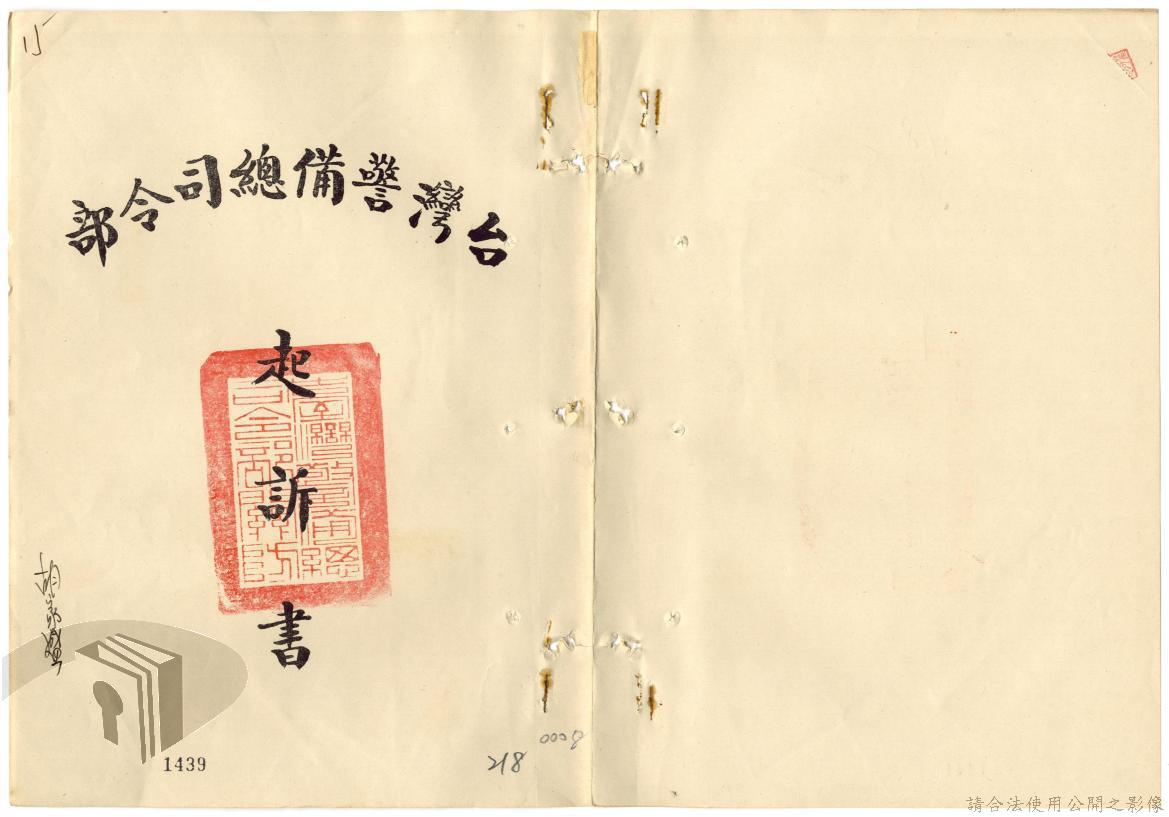 15
台灣警備總司令部
起訴書
1439
218
0008
請合法使用公開之影像